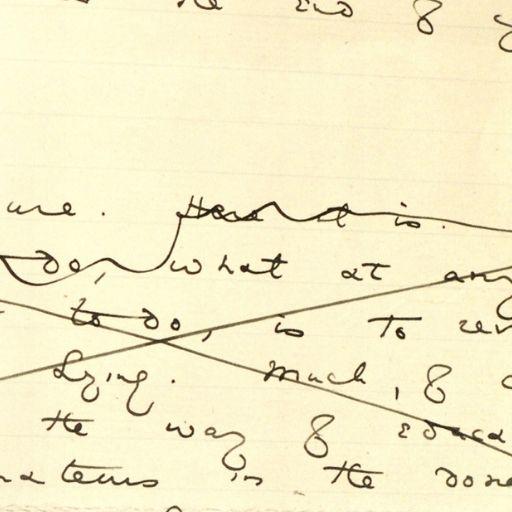 the end of
ure. Here it is.
do, what at any
to do, is to
dying. Much, of
the way of educa
in the